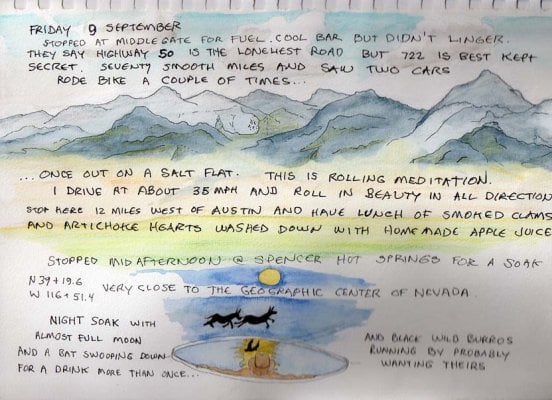 FRIDAY 9 SEPTEMBER
STOPPED AT MIDDLEGATE FOR FUEL. COOL BAR BUT DIDN'T LINGER.
THEY SAY HIGHWAY 50 IS THE LONELIEST ROAD BUT 722 IS BEST KEPT
SECRET. SEVENTY SMOOTH MILES AND SAW TWO CARS
RODE BIKE A COUPLE OF TIMES...
...ONCE OUT ON A SALT FLAT. THIS IS ROLLING MEDITATION.
I DRIVE AT ABOUT 35 MPH AND ROLL IN BEAUTY IN ALL DIRECTION
STOP HERE 12 MILES WEST OF AUSTIN AND HAVE LUNCH OF SMOKED CLAMS
AND ARTICHOKE HEARTS WASHED DOWN WITH HOMEMADE APPLE JUICE
STOPPED MIDAFTERNOON @ SPENCER HOT SPRINGS FOR A SOAK
N 39+19.6
W 116+51.4
VERY CLOSE TO THE GEOGRAPHIC CENTER OF NEVADA.
NIGHT SOAK WITH
ALMOST FULL MOON
AND A BAT SWOOPING DOWN
FOR A DRINK MORE THAN ONCE...
AND BLACK WILD BURROS
RUNNING BY PROBABLY
WANTING THEIRS